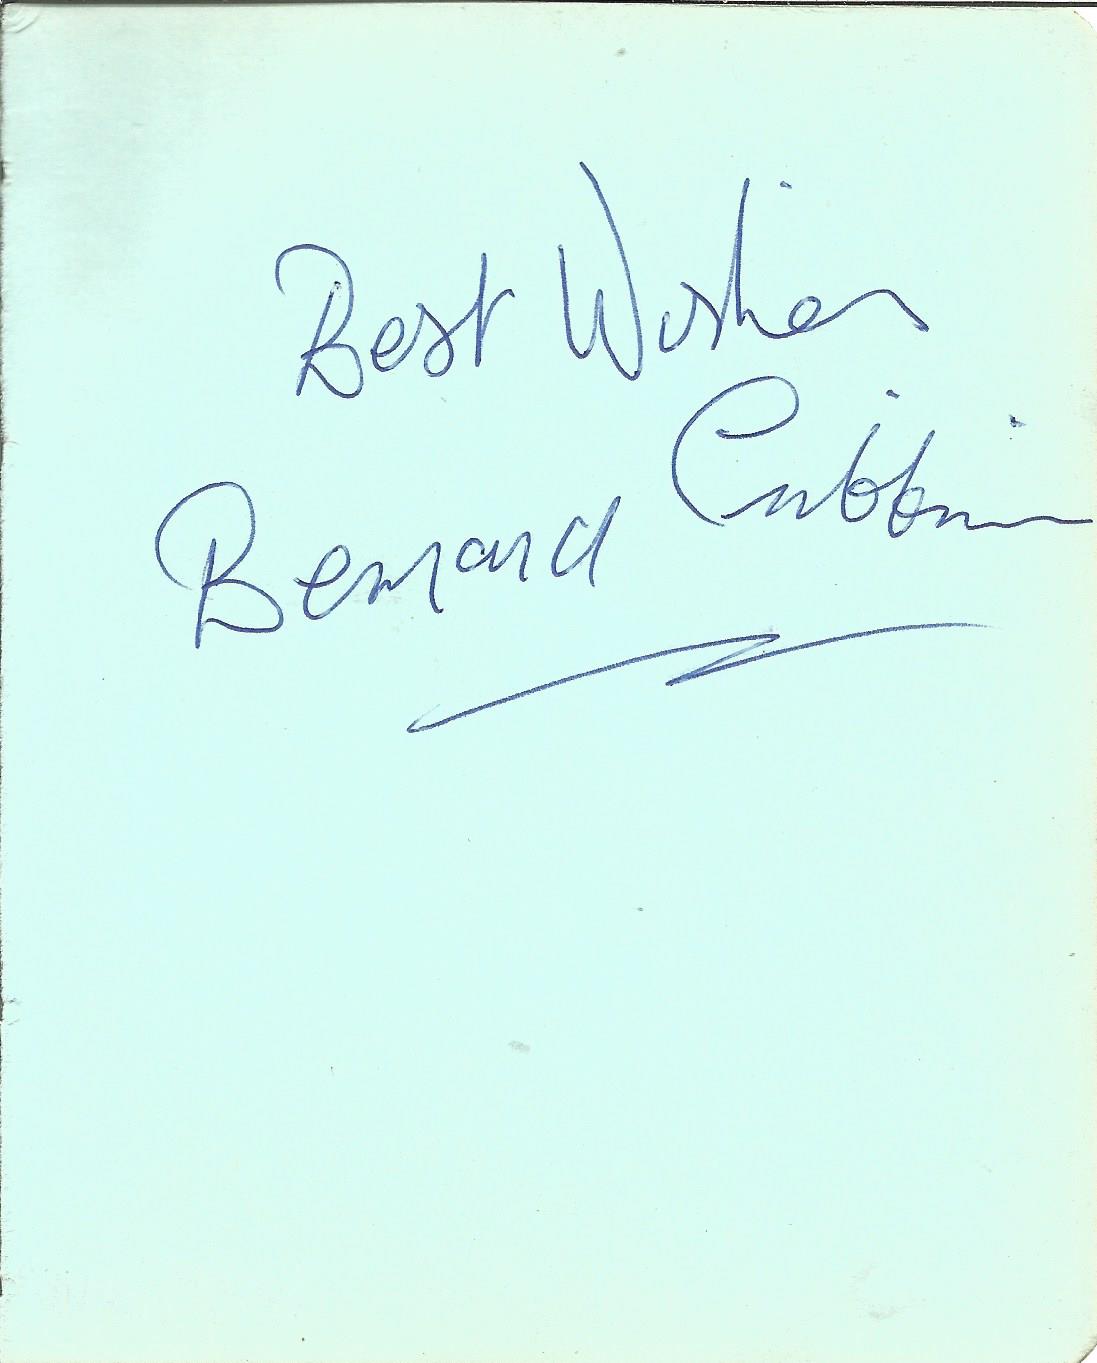 Best Wishes
Bernard Cribbins